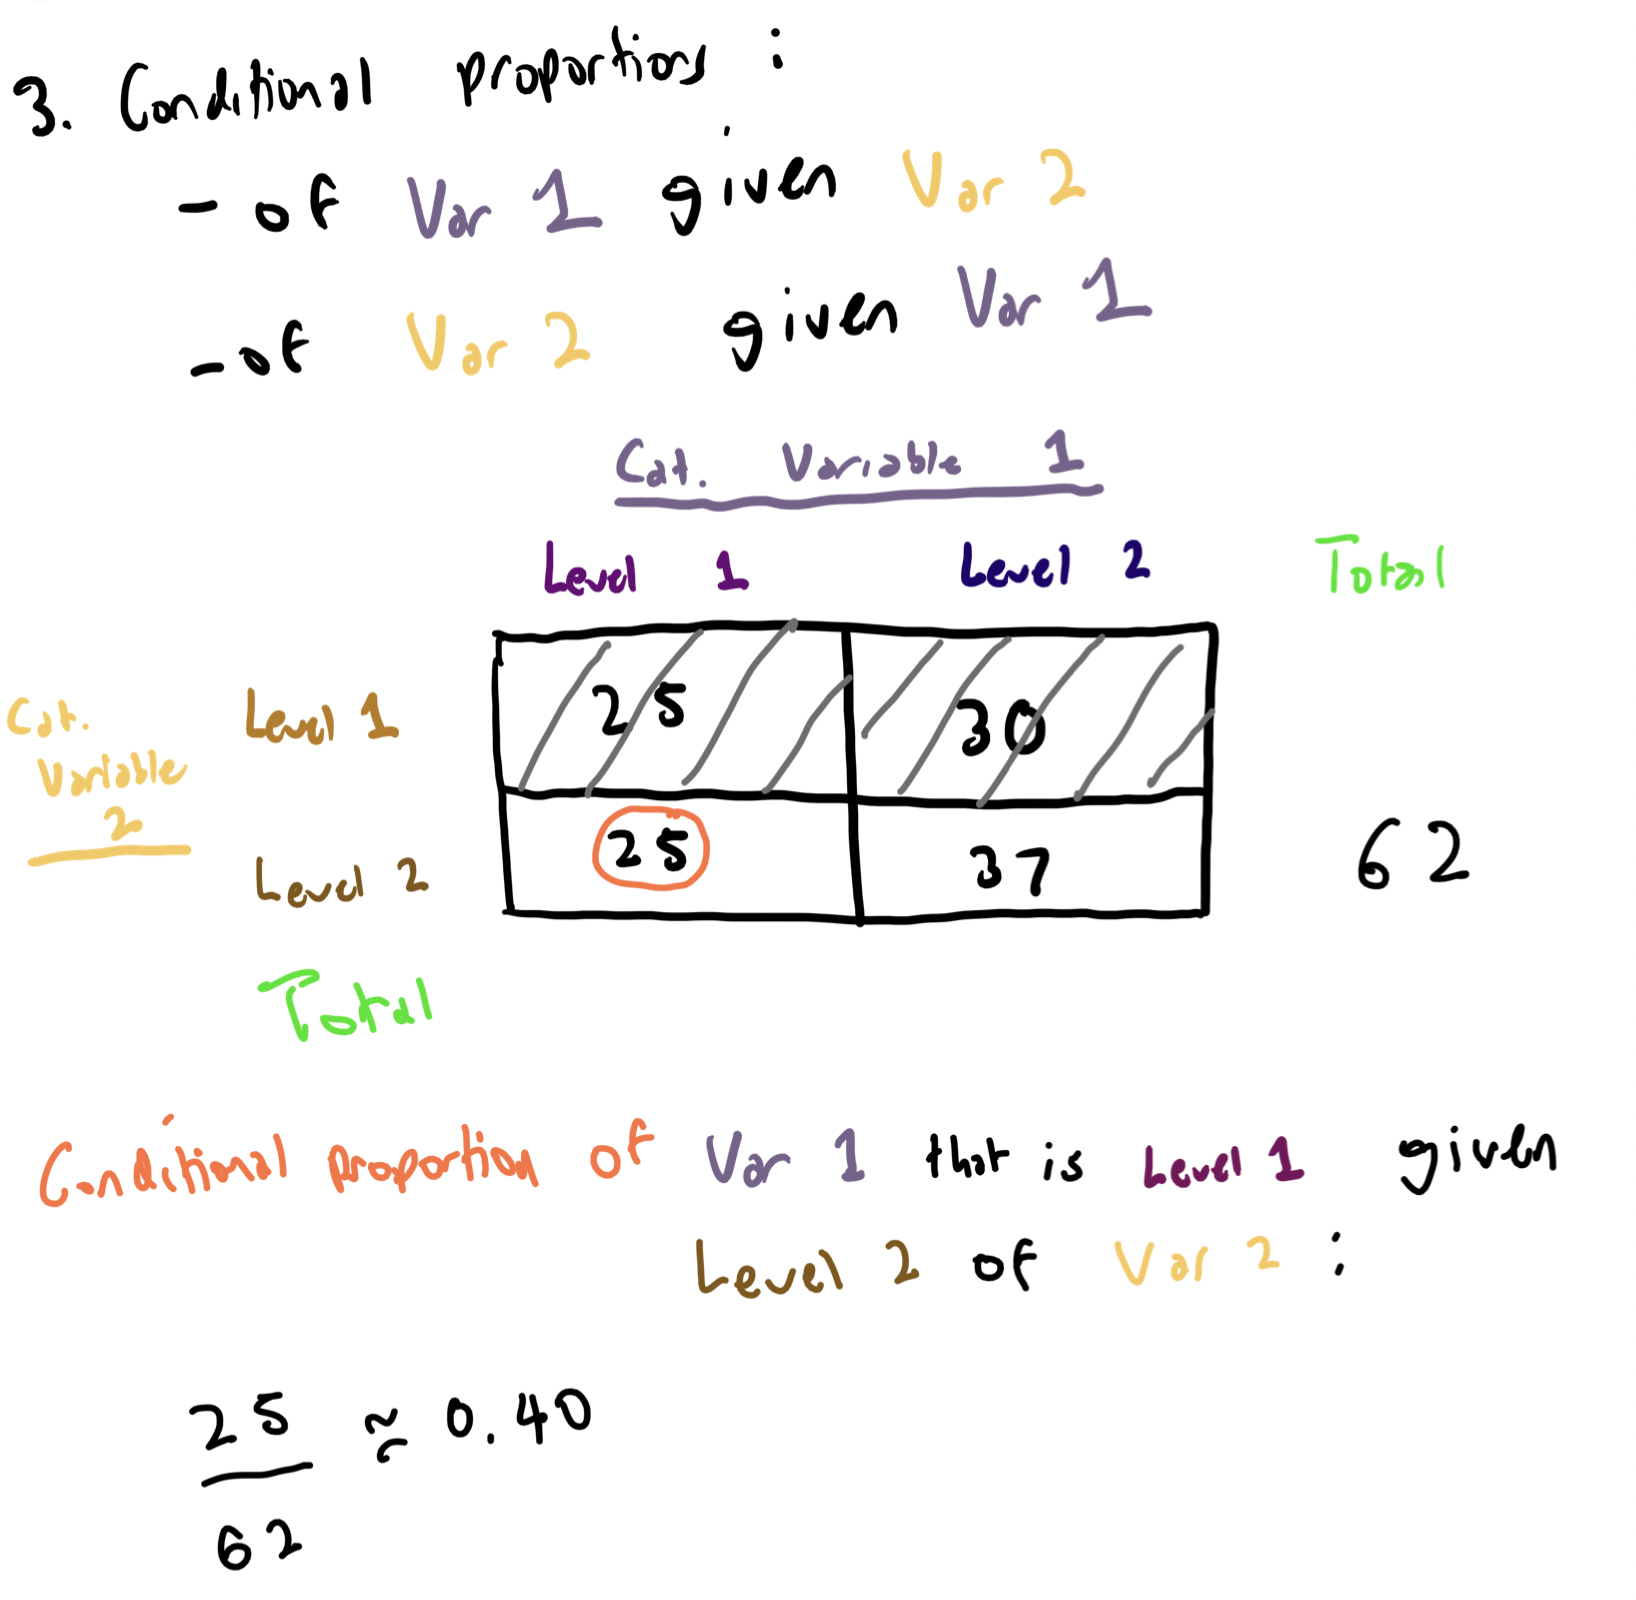 3. Conditional proportions :
- of Var 1 given Var 2
- of Var 2 given Var 1
Cat. Variable 1
Level 1 Level 2 Total
Cat. Variable 2
Level 1 25 30
Level 2 25 37 62
Total
Conditional proportion of Var 1 that is Level 1 given
Level 2 of Var 2 :
25
≃ 0.40
62